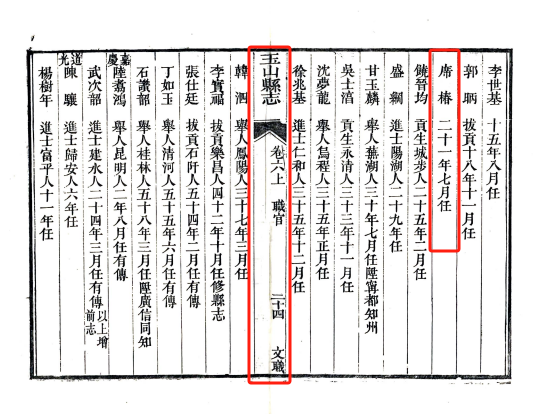 李世基 十五年八月任
郭昞 拔貢十八年十一月任
席椿 二十一年七月任
饒晉均 貢生城步人二十五年二月任
盛綱 進士陽湖人二十九年任
甘玉麟 舉人蕪湖人三十年七月任陞寧都知州
吳士涪 貢生永清人三十三年十一月任
沈夢龍 舉人烏程人三十五年正月任
徐兆基 進士仁和人三十五年十二月任
玉山縣志 卷六上 職官 二十四 文職
韓泗 舉人鳳陽人三十七年三月任
李實福 拔貢樂昌人四十二年十月任修縣志
張仕廷 拔貢石阡人五十四年二月任
丁如玉 舉人清河人五十五年六月任有傳
石讚韶 舉人桂林人五十八年三月任陞廣信同知
嘉慶
陸翥鴻 舉人昆明人二年八月任有傳
武次韶 進士建水人二十四年三月任有傳以上增前志
道光
陳驤 進士歸安人六年任
楊樹年 進士富平人十一年任